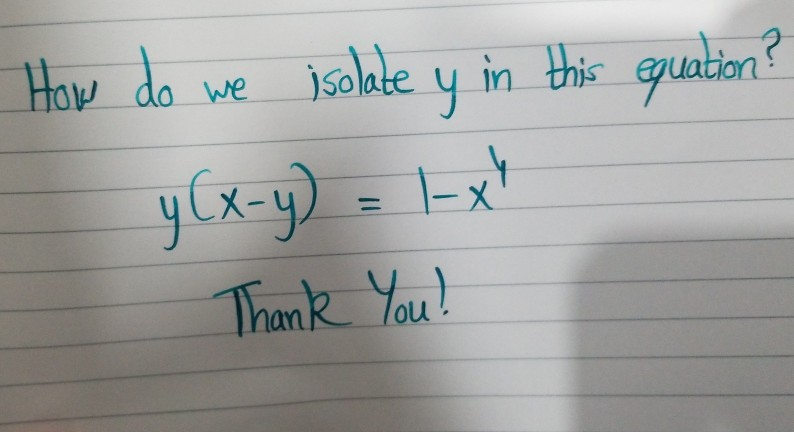 How do we isolate y in this equation?
y(x-y) = 1-x⁴
Thank You!